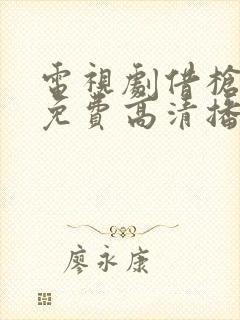 電視劇借槍
免費高清播
廖永康